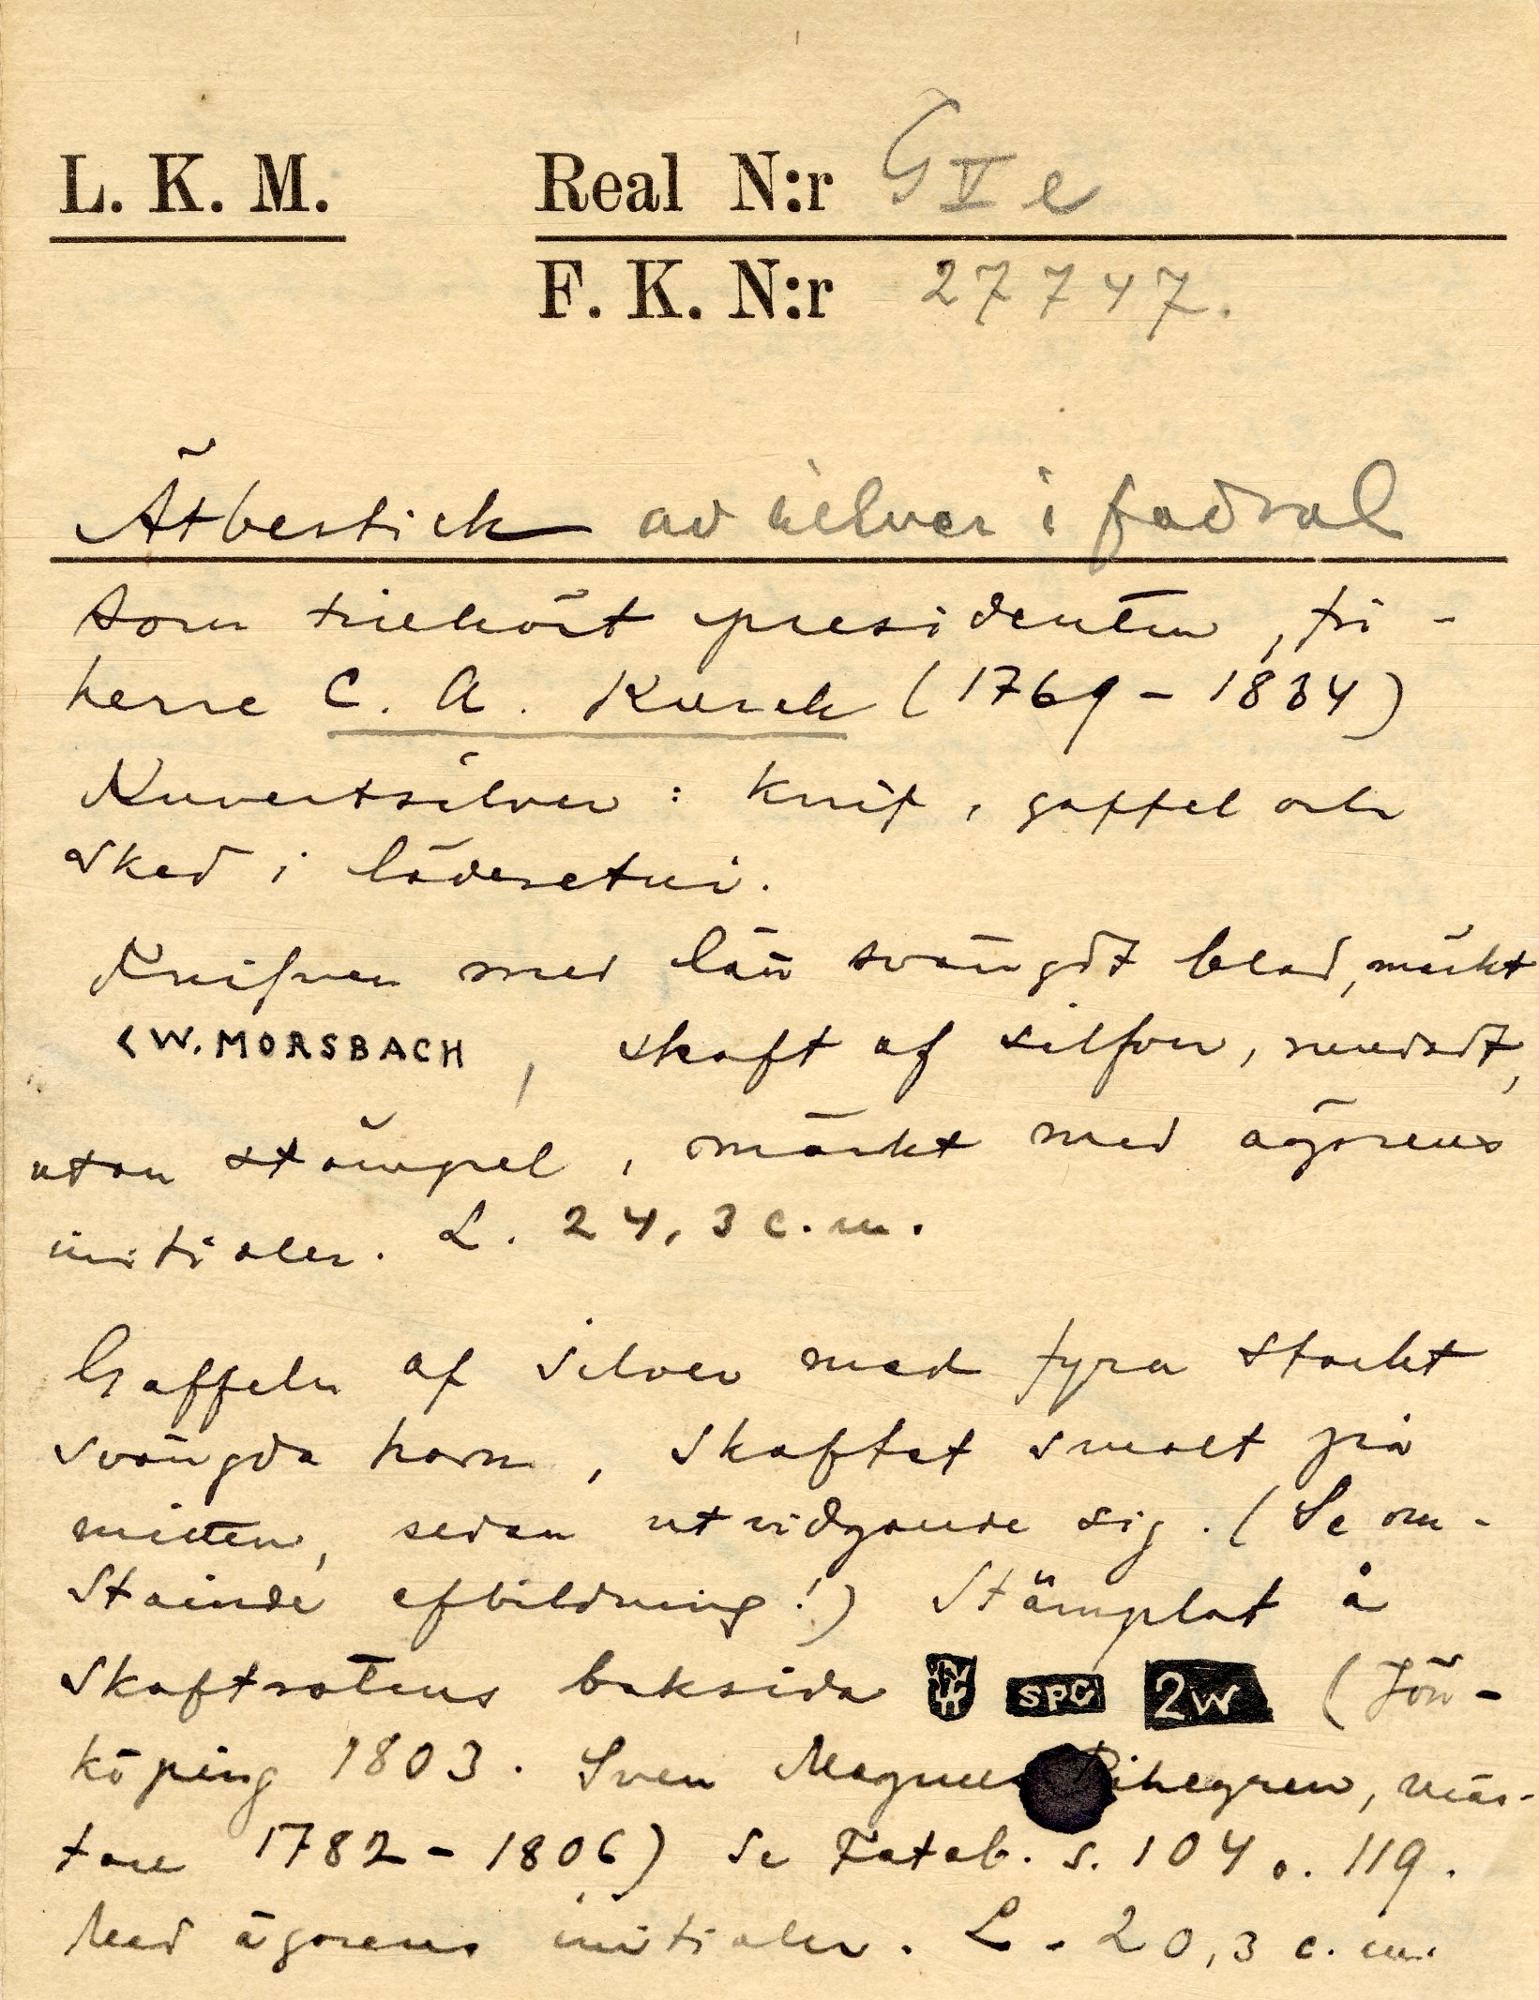 L. K. M. Real N:r G V e
F. K. N:r 27747.
Ätbestick av silver i fodral
som tillhört presidenten, fri-
herre C. A. Kurck (1769-1834)
Kuvertsilver: knif, gaffel och
sked i läderetui.
Knifven med lätt svängdt blad, märkt
<W. MORSBACH, skaft af silfver, rundadt,
utan stämpel, märkt med ägarens
initialer. L. 24,3 c.m.
Gaffeln af silver med fyra starkt
svängda horn, skaftet smalt på
mitten, sedan utvidgande sig. (Se om-
stående afbildning!) Stämplat å
skaftrotens baksida SPG 2W (Jön-
köping 1803. Sven Magnus Pihlgren, mäs-
tare 1782-1806) Se Fatab. s. 104 o. 119.
Med ägarens initialer. L. 20,3 c.m.